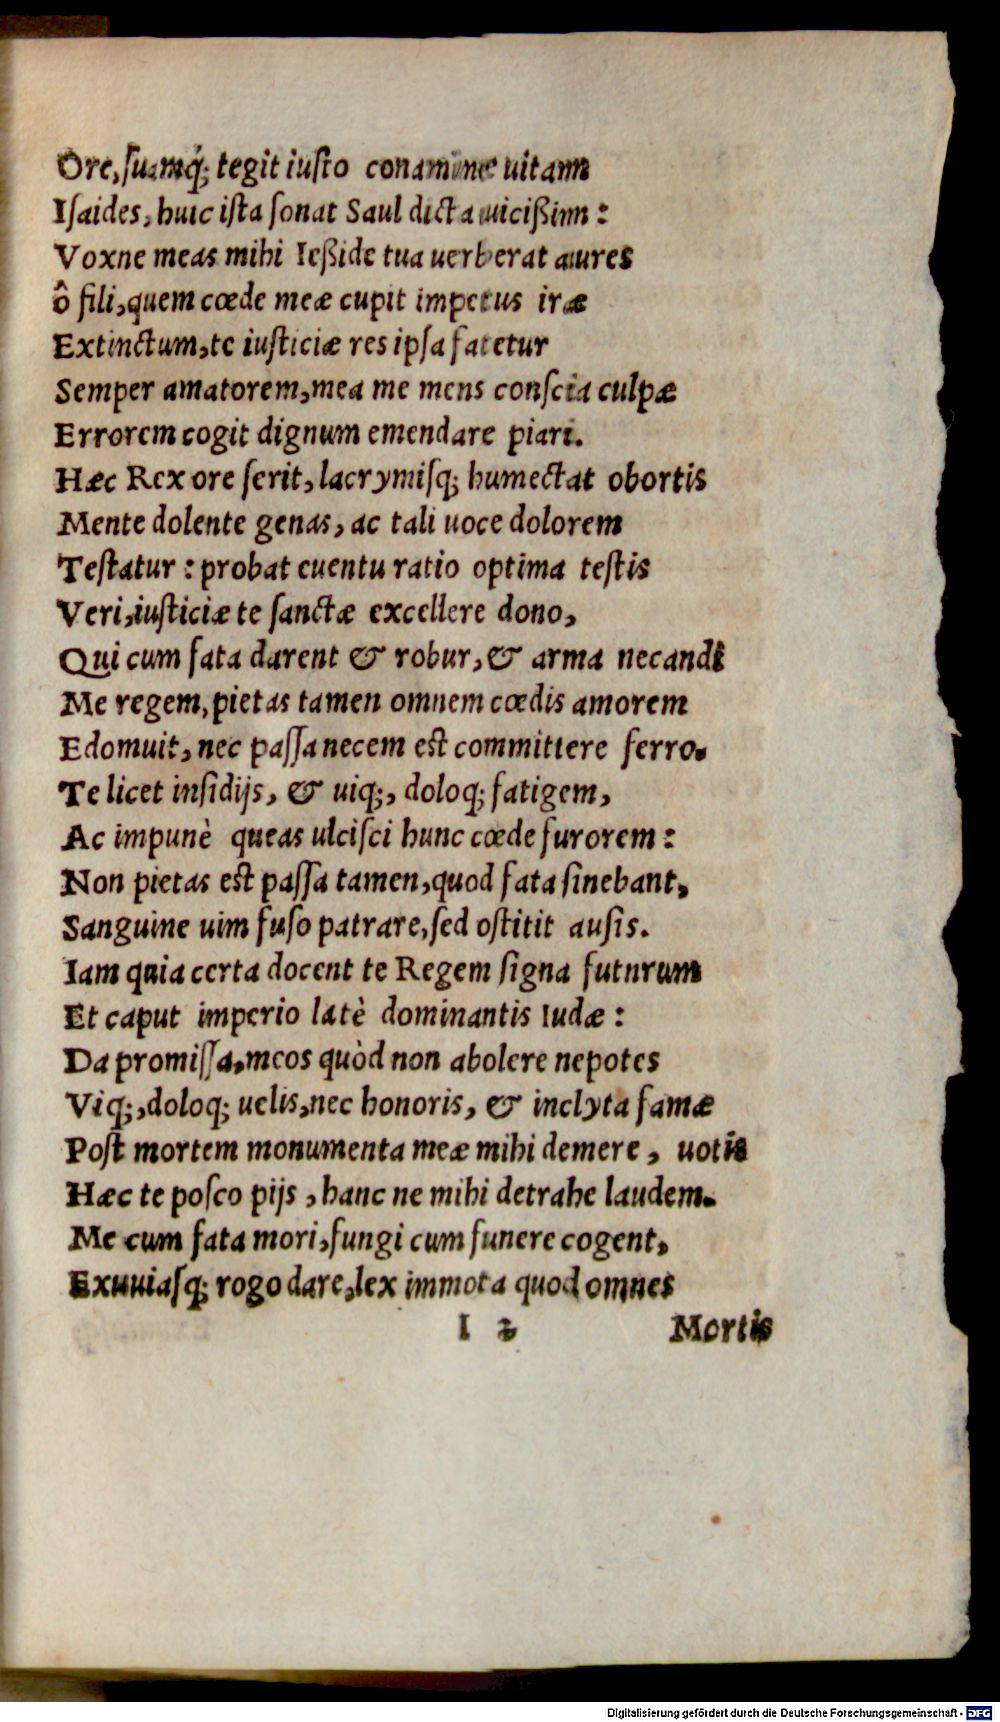 Ore, ſuamq́; tegit iuſto conamine uitam
Iſaides, huic iſta ſonat Saul dicta uicißim:
Voxne meas mihi Ießide tua uerberat aures
ô fili, quem cœde meæ cupit impetus iræ
Extinctum, te iuſticiæ res ipſa fatetur
Semper amatorem, mea me mens conſcia culpæ
Errorem cogit dignum emendare piari.
Hæc Rex ore ſerit, lacrymiſq; humectat obortis
Mente dolente genas, ac tali uoce dolorem
Teſtatur: probat euentu ratio optima teſtis
Veri, iuſticiæ te ſanctæ excellere dono,
Qui cum fata darent & robur, & arma necandi
Me regem, pietas tamen omnem cœdis amorem
Edomuit, nec paſſa necem eſt committere ferro.
Te licet inſidijs, & uiq;, doloq; fatigem,
Ac impunè queas ulciſci hunc cœde furorem:
Non pietas eſt paſſa tamen, quod fata ſinebant,
Sanguine uim fuſo patrare, ſed oſtitit auſis.
Iam quia certa docent te Regem ſigna futnrum
Et caput imperio latè dominantis Iudæ:
Da promiſſa, meos quòd non abolere nepotes
Viq;, doloq; uelis, nec honoris, & inclyta famæ
Poſt mortem monumenta meæ mihi demere, uotis
Hæc te poſco pijs, hanc ne mihi detrahe laudem.
Me cum fata mori, fungi cum funere cogent,
Exuuiaſq; rogo dare, lex immota quod omnes
I 2 Mortis
Digitalisierung gefördert durch die Deutsche Forschungsgemeinschaft - DFG